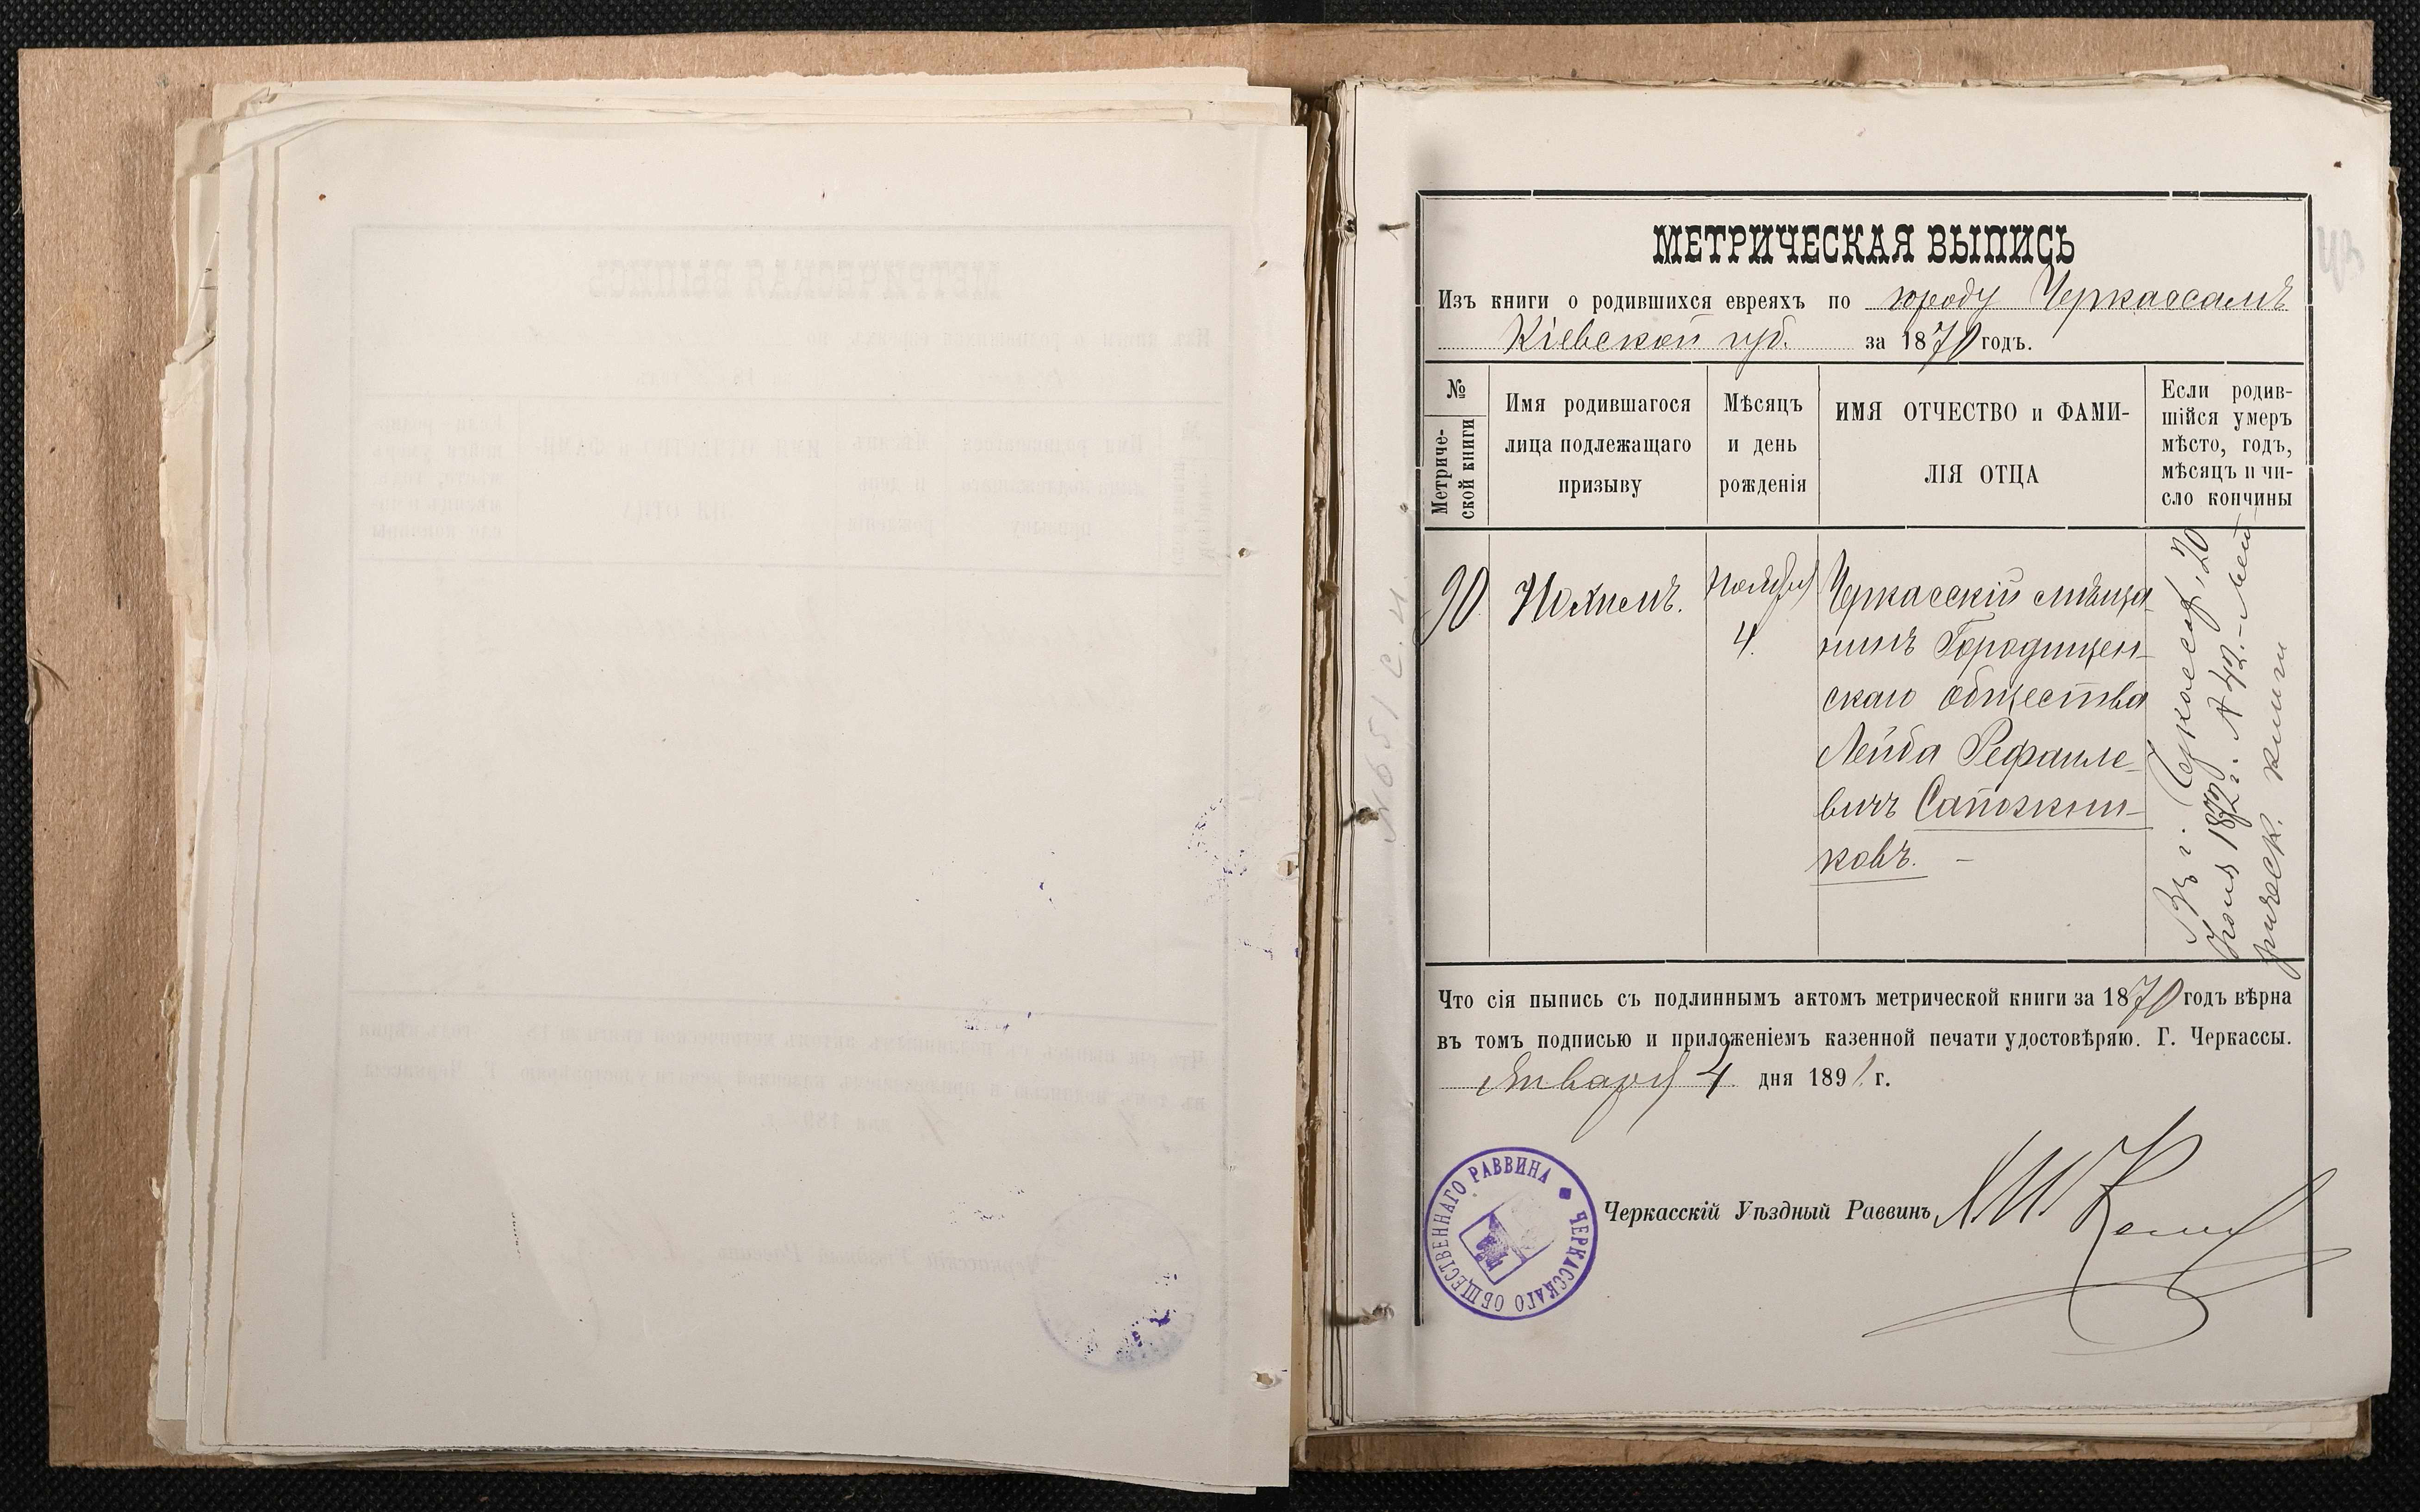 МЕТРИЧЕСКАЯ ВЫПИСЬ
Изъ книги о родившихся евреяхъ по городу Черкассамъ
Кіевской губ. за 1870 годъ.
№ Метриче-ской книги
Имя родившагося лица подлежащаго призыву
Мѣсяцъ и день рожденія
ИМЯ ОТЧЕСТВО и ФАМИ-
ЛІЯ ОТЦА
Если родив-
шійся умеръ
мѣсто, годъ,
мѣсяцъ и чи-
сло кончины
90
Нохимъ.
Ноября
4.
Черкасскій мѣща-
нинъ Городищен-
скаго общества
Лейба Рефаиле-
вичъ Сапожни-
ковъ. –
Въ г. Черкассах, 20
1872 г. № 42.- Мет
рическ. книги
Что сія выпись съ подлиннымъ актомъ метрической книги за 1870 годъ вѣрна
въ томъ подписью и приложеніемъ казенной печати удостовѣряю. Г. Черкассы.
Января 4 дня 1891 г.
Черкасскій Уѣздный Раввинъ
ЧЕРКАССКАГО ОБЩЕСТВЕННАГО РАВВИНА
№651 С. И.
43